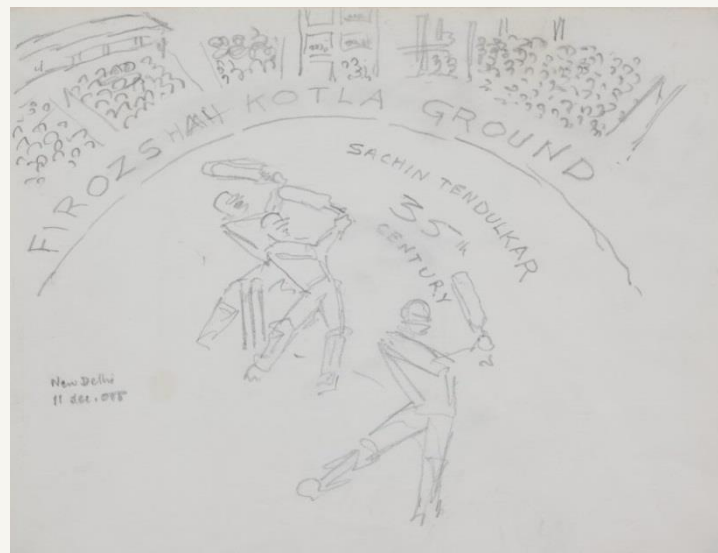 FIROZSHAH KOTLA GROUND
SACHIN TENDULKAR
35th
CENTURY
New Delhi
11 dec.